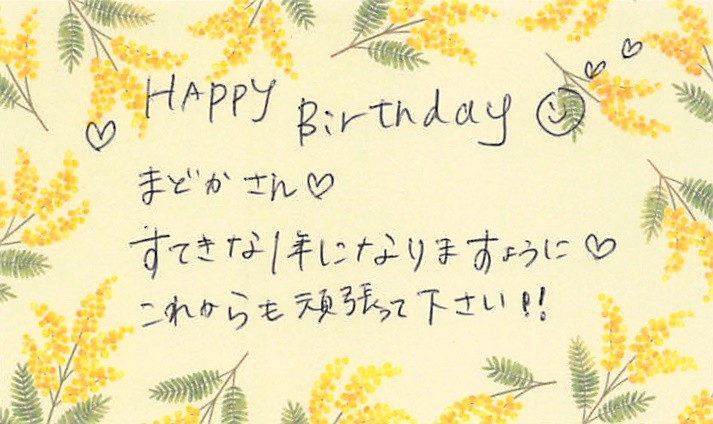 HAPPY Birthday ☺
まどかさん♡
すてきな1年になりますように♡
これからも頑張って下さい!!